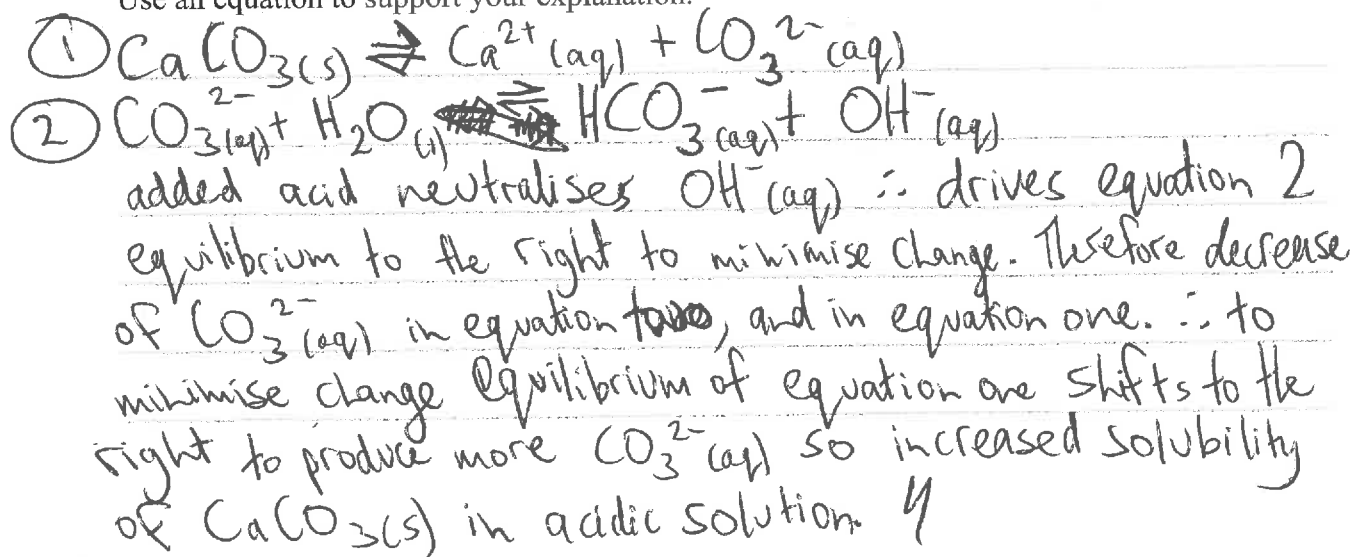 Use an equation to support your explanation.
① CaCO₃(s) ⇌ Ca²⁺(aq) + CO₃²⁻(aq)
② CO₃²⁻(aq) + H₂O(l) ⇌ HCO₃⁻(aq) + OH⁻(aq)
added acid neutralises OH⁻(aq) ∴ drives equation 2
equilibrium to the right to minimise change. Therefore decrease
of CO₃²⁻(aq) in equation two, and in equation one. ∴ to
minimise change equilibrium of equation one shifts to the
right to produce more CO₃²⁻(aq) so increased solubility
of CaCO₃(s) in acidic solution.